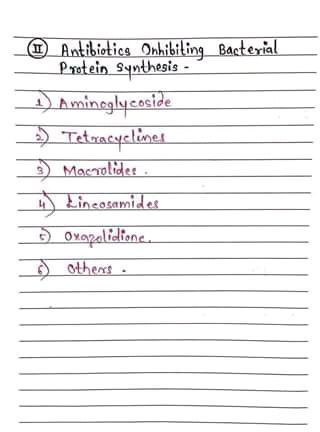 II Antibiotics Inhibiting Bacterial
Protein Synthesis -
1) Aminoglycoside
2) Tetracyclines
3) Macrolides .
4) Lincosamides
5) Oxazolidione.
6) Others .